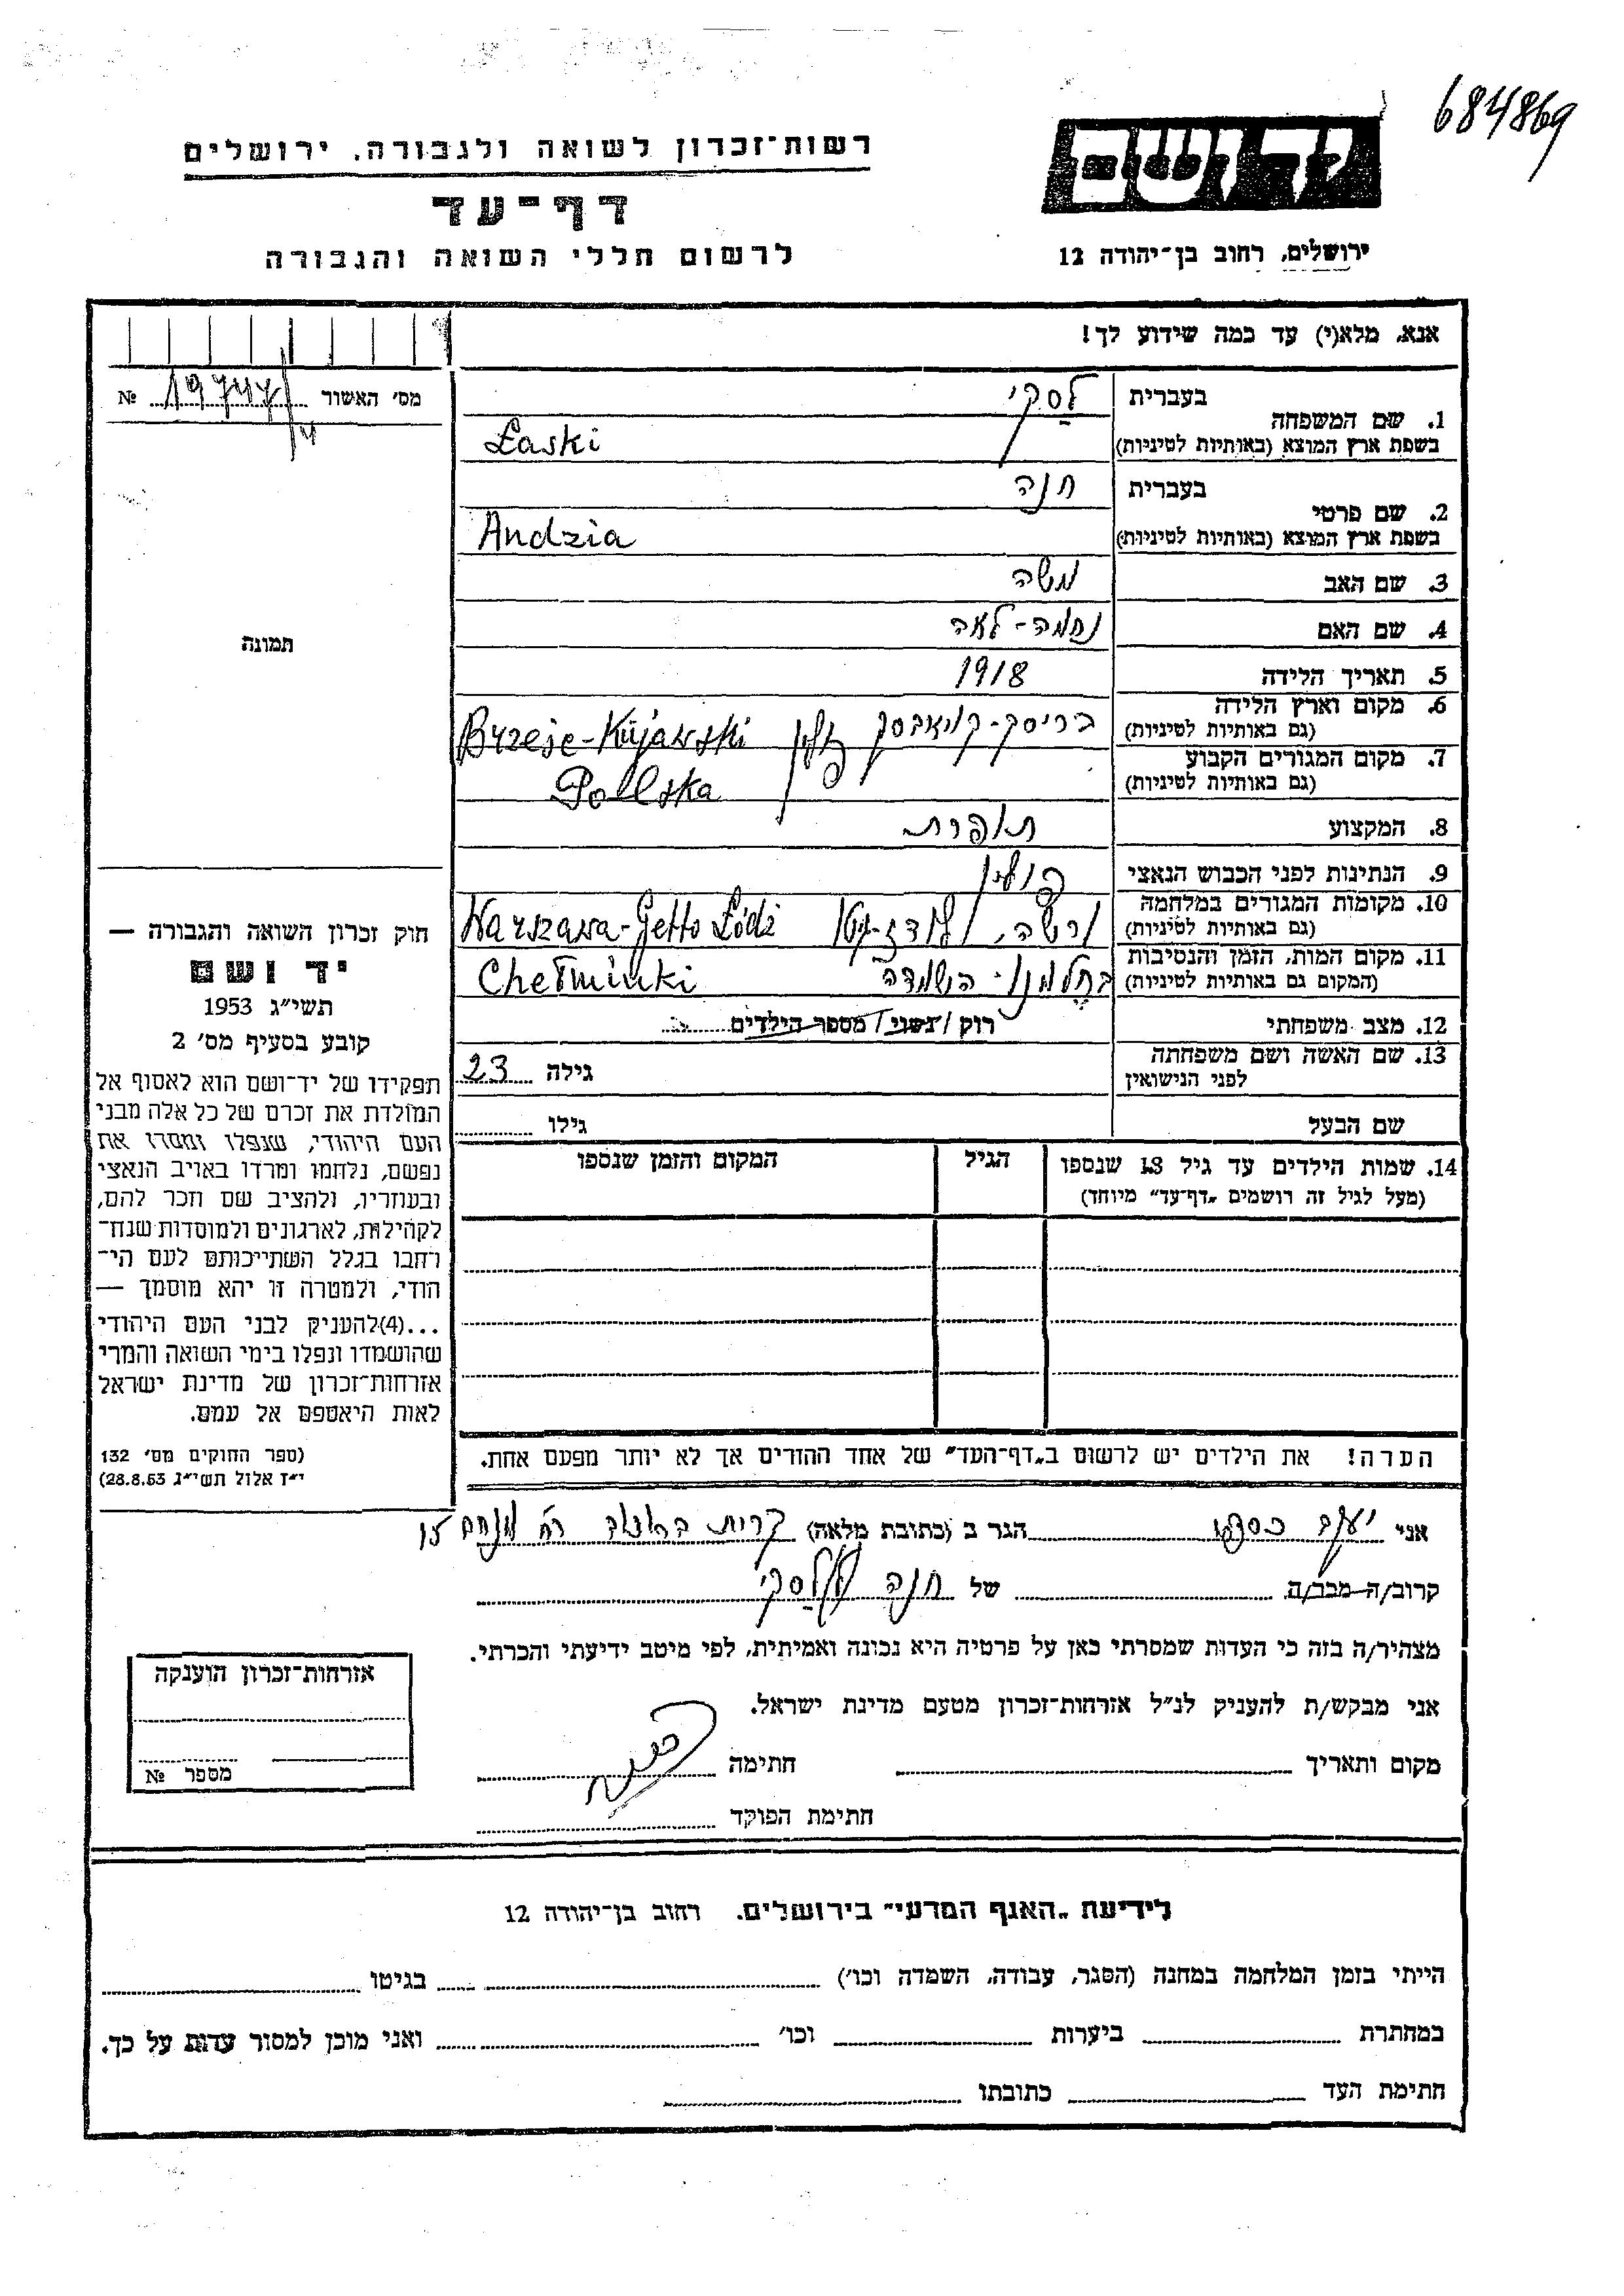 684869
יד ושם
רשות־זכרון לשואה ולגבורה, ירושלים
דף־עד
לרשום חללי השואה והגבורה
ירושלים, רחוב בן־יהודה 12
אנא, מלא(י) עד כמה שידוע לך!
מס׳ האשור № 19747/4
1. שם המשפחה
בעברית לסקי
בשפת ארץ המוצא (באותיות לטיניות) Łaski
2. שם פרטי
בעברית חנה
בשפת ארץ המוצא (באותיות לטיניות) Andzia
3. שם האב משה
4. שם האם נחמה-לאה
5. תאריך הלידה 1918
6. מקום וארץ הלידה
(גם באותיות לטיניות)
בריסק-קויאבסק פולין Brześć-Kujawski
7. מקום המגורים הקבוע
(גם באותיות לטיניות)
Pollska
8. המקצוע תופרת
9. הנתינות לפני הכבוש הנאצי פולין
10. מקומות המגורים במלחמה
(גם באותיות לטיניות)
ורשה, לודז-גטו Warszawa-Getto Łódź
11. מקום המות, הזמן והנסיבות
(המקום גם באותיות לטיניות)
בחלמנו - השמדה Chełminki
12. מצב משפחתי רוק / נשוי / מספר הילדים
13. שם האשה ושם משפחתה
לפני הנישואין
גילה 23
שם הבעל גילו
14. שמות הילדים עד גיל 18 שנספו
(מעל לגיל זה רושמים „דף־עד״ מיוחד)
הגיל
המקום והזמן שנספו
הערה! את הילדים יש לרשום ב„דף־העד״ של אחד ההורים אך לא יותר מפעם אחת.
תמונה
חוק זכרון השואה והגבורה —
יד ושם
תשי״ג 1953
קובע בסעיף מס׳ 2
תפקידו של יד־ושם הוא לאסוף אל
המולדת את זכרם של כל אלה מבני
העם היהודי, שנפלו ומסרו את
נפשם, נלחמו ומרדו באויב הנאצי
ובעוזריו, ולהציב שם וזכר להם,
לקהילות, לארגונים ולמוסדות שנח־
רחבו בגלל השתייכותם לעם הי־
הודי, ולמטרה זו יהא מוסמך —
...(4)להעניק לבני העם היהודי
שהושמדו ונפלו בימי השואה והמרי
אזרחות־זכרון של מדינת ישראל
לאות היאספם אל עמם.
(ספר החוקים מס׳ 132
י״ז אלול תשי״ג 28.8.53)
אני יעקב הגר ב (כתובת מלאה) קרית רח׳ מנחם
קרוב/ה מכר/ה של חנה לסקי
מצהיר/ה בזה כי העדות שמסרתי כאן על פרטיה היא נכונה ואמיתית, לפי מיטב ידיעתי והכרתי.
אני מבקש/ת להעניק לנ״ל אזרחות־זכרון מטעם מדינת ישראל.
מקום ותאריך חתימה
חתימת הפוקד
אזרחות־זכרון הוענקה
מספר №
לידיעת „האגף המדעי״ בירושלים, רחוב בן־יהודה 12
הייתי בזמן המלחמה במחנה (הסגר, עבודה, השמדה וכו׳) בגיטו
במחתרת ביערות וכו׳ ואני מוכן למסור עדות על כך.
חתימת העד כתובתו